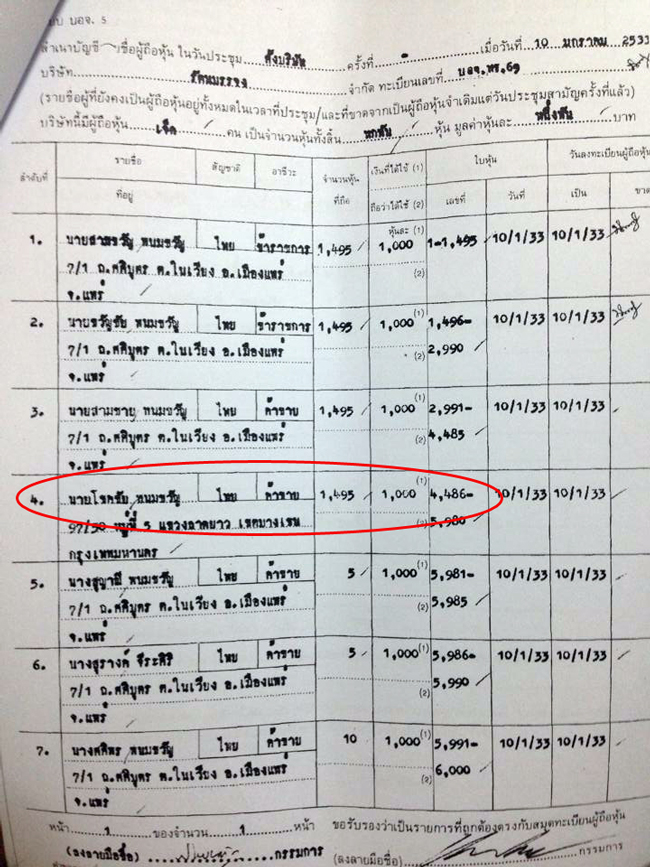 แบบ บอจ. 5
สำเนาบัญชีรายชื่อผู้ถือหุ้น ในวันประชุม ตั้งบริษัท ครั้งที่ - เมื่อวันที่ 10 มกราคม 2533
บริษัท จำกัด ทะเบียนเลขที่ บอจ.พร.69
(รายชื่อผู้ที่ยังคงเป็นผู้ถือหุ้นอยู่ทั้งหมดในเวลาที่ประชุม/และที่ขาดจากเป็นผู้ถือหุ้นจำเดิมแต่วันประชุมสามัญครั้งที่แล้ว)
บริษัทนี้มีผู้ถือหุ้น เจ็ด คน เป็นจำนวนหุ้นทั้งสิ้น หกพัน หุ้น มูลค่าหุ้นละ หนึ่งพัน บาท
ลำดับที่ รายชื่อ สัญชาติ อาชีวะ จำนวนหุ้น เงินที่ได้ใช้ (1) ใบหุ้น วันลงทะเบียนผู้ถือหุ้น
ที่อยู่ ที่ถือ ถือว่าได้ใช้ (2) เลขที่ วันที่ เป็น ขาด
หุ้นละ (1)
1. นายสามขวัญ พนมขวัญ ไทย ข้าราชการ 1,495 1,000 1-1,495 10/1/33 10/1/33
7/1 ถ.ศศิบุตร ต.ในเวียง อ.เมืองแพร่ (2)
จ.แพร่
2. นายขวัญชัย พนมขวัญ ไทย ข้าราชการ 1,495 1,000 (1) 1,496- 10/1/33 10/1/33
7/1 ถ.ศศิบุตร ต.ในเวียง อ.เมืองแพร่ (2) 2,990
จ.แพร่
3. นายสามชาย พนมขวัญ ไทย ค้าขาย 1,495 1,000 (1) 2,991- 10/1/33 10/1/33
7/1 ถ.ศศิบุตร ต.ในเวียง อ.เมืองแพร่ (2) 4,485
จ.แพร่
4. นายโชคชัย พนมขวัญ ไทย ค้าขาย 1,495 1,000 (1) 4,486- 10/1/33 10/1/33
97/30 หมู่ที่ 5 แขวงลาดยาว เขตบางเขน (2) 5,980
กรุงเทพมหานคร
5. พนมขวัญ ไทย ค้าขาย 5 1,000 (1) 5,981- 10/1/33 10/1/33
7/1 ถ.ศศิบุตร ต.ในเวียง อ.เมืองแพร่ (2) 5,985
จ.แพร่
6. นางสุรางค์ จีระศิริ ไทย ค้าขาย 5 1,000 (1) 5,986- 10/1/33 10/1/33
7/1 ถ.ศศิบุตร ต.ในเวียง อ.เมืองแพร่ (2) 5,990
จ.แพร่
7. นางศศิพร พนมขวัญ ไทย ค้าขาย 10 1,000 (1) 5,991- 10/1/33 10/1/33
7/1 ถ.ศศิบุตร ต.ในเวียง อ.เมืองแพร่ (2) 6,000
จ.แพร่
หน้า 1 ของจำนวน 1 หน้า ขอรับรองว่าเป็นรายการที่ถูกต้องตรงกับสมุดทะเบียนผู้ถือหุ้น
(ลงลายมือชื่อ) กรรมการ (ลงลายมือชื่อ) กรรมการ